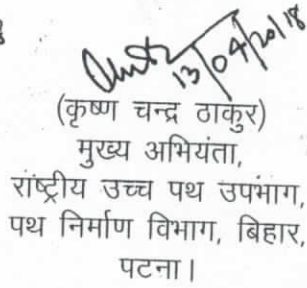 13/04/2018
(कृष्ण चन्द्र ठाकुर)
मुख्य अभियंता,
राष्ट्रीय उच्च पथ उपभाग,
पथ निर्माण विभाग, बिहार,
पटना।